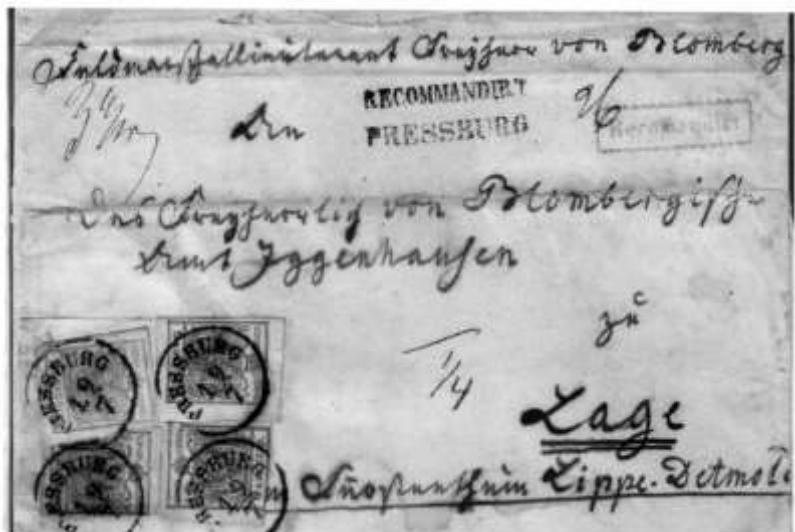 Feldmarschallieutenant Freyherr von Blomberg
RECOMMANDIRT
PRESSBURG
Recommandirt
An
Das Freyherrlich von Blombergische
Amt Iggenhausen
zu
1/4
Lage
im Fürstenthum Lippe-Detmold
PRESSBURG
19/7
PRESSBURG
19/7
PRESSBURG
19/7
PRESSBURG
19/7